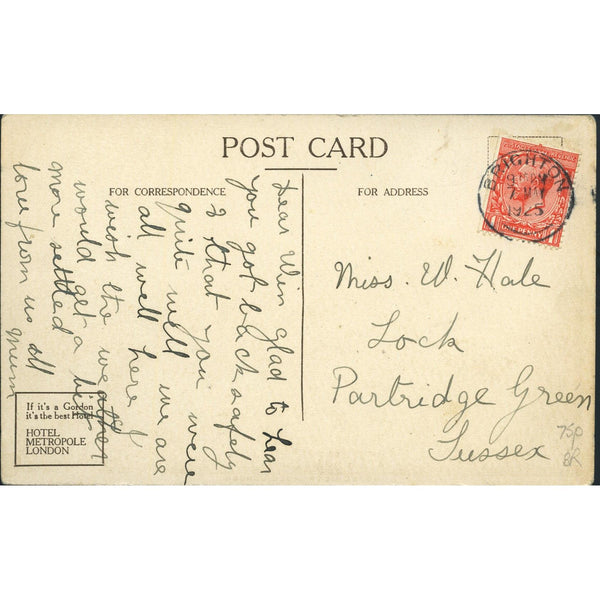 POST CARD
FOR CORRESPONDENCE
FOR ADDRESS
Dear Win glad to hear
you got back safely
& that you were
quite well we are
all well here I
wish the weather
would get a bit
more settled
love from us all
Mum
If it's a Gordon
it's the best Hotel
HOTEL
METROPOLE
LONDON
BRIGHTON
7 MAY
1925
ONE PENNY
Miss W. Hale
Lock
Partridge Green
Sussex
75p
BR